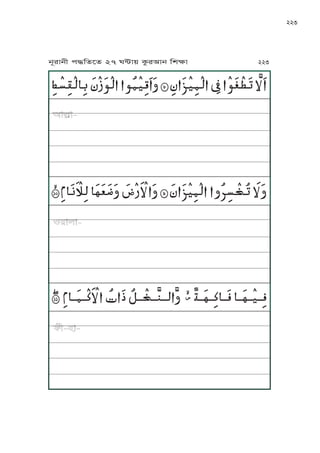 ২২৩
নূরানী পদ্ধতিতে ২৭ ঘন্টায় কুরআন শিক্ষা ২২৩
اَلَّا تَطْغَوْا فِى الْمِيْزَانِ ۝ وَاَقِيْمُوا الْوَزْنَ بِالْقِسْطِ
আল্লা-
وَلَا تُخْسِرُوا الْمِيْزَانَ ۝ وَالْاَرْضَ وَضَعَهَا لِلْاَنَامِ ۝
ওয়ালা-
فِيْهَا فَاكِهَةٌ وَّالنَّخْلُ ذَاتُ الْاَكْمَامِ ۝
ফী-হা-